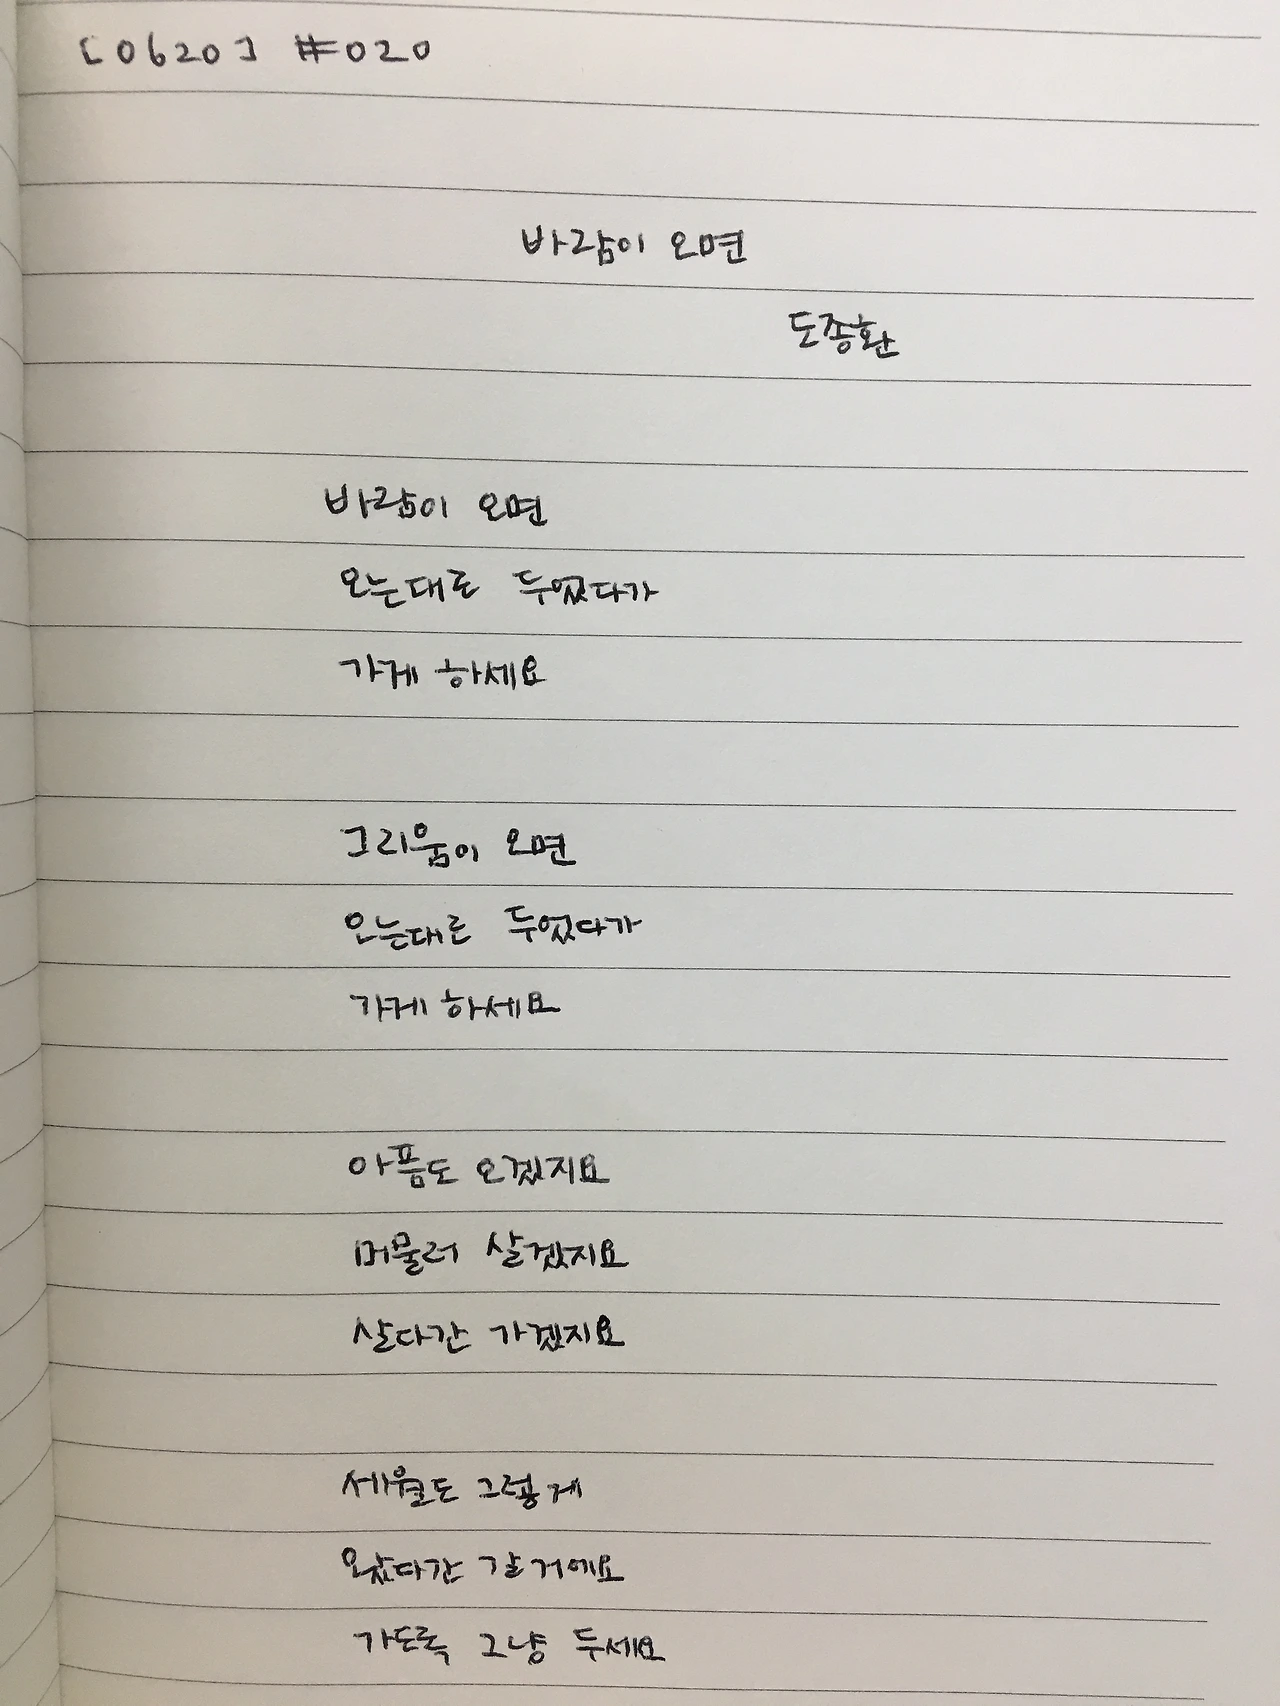 [0620] #020
바람이 오면
도종환
바람이 오면
오는대로 두었다가
가게 하세요
그리움이 오면
오는대로 두었다가
가게 하세요
아픔도 오겠지요
머물러 살겠지요
살다간 가겠지요
세월도 그렇게
왔다간 갈거에요
가도록 그냥 두세요